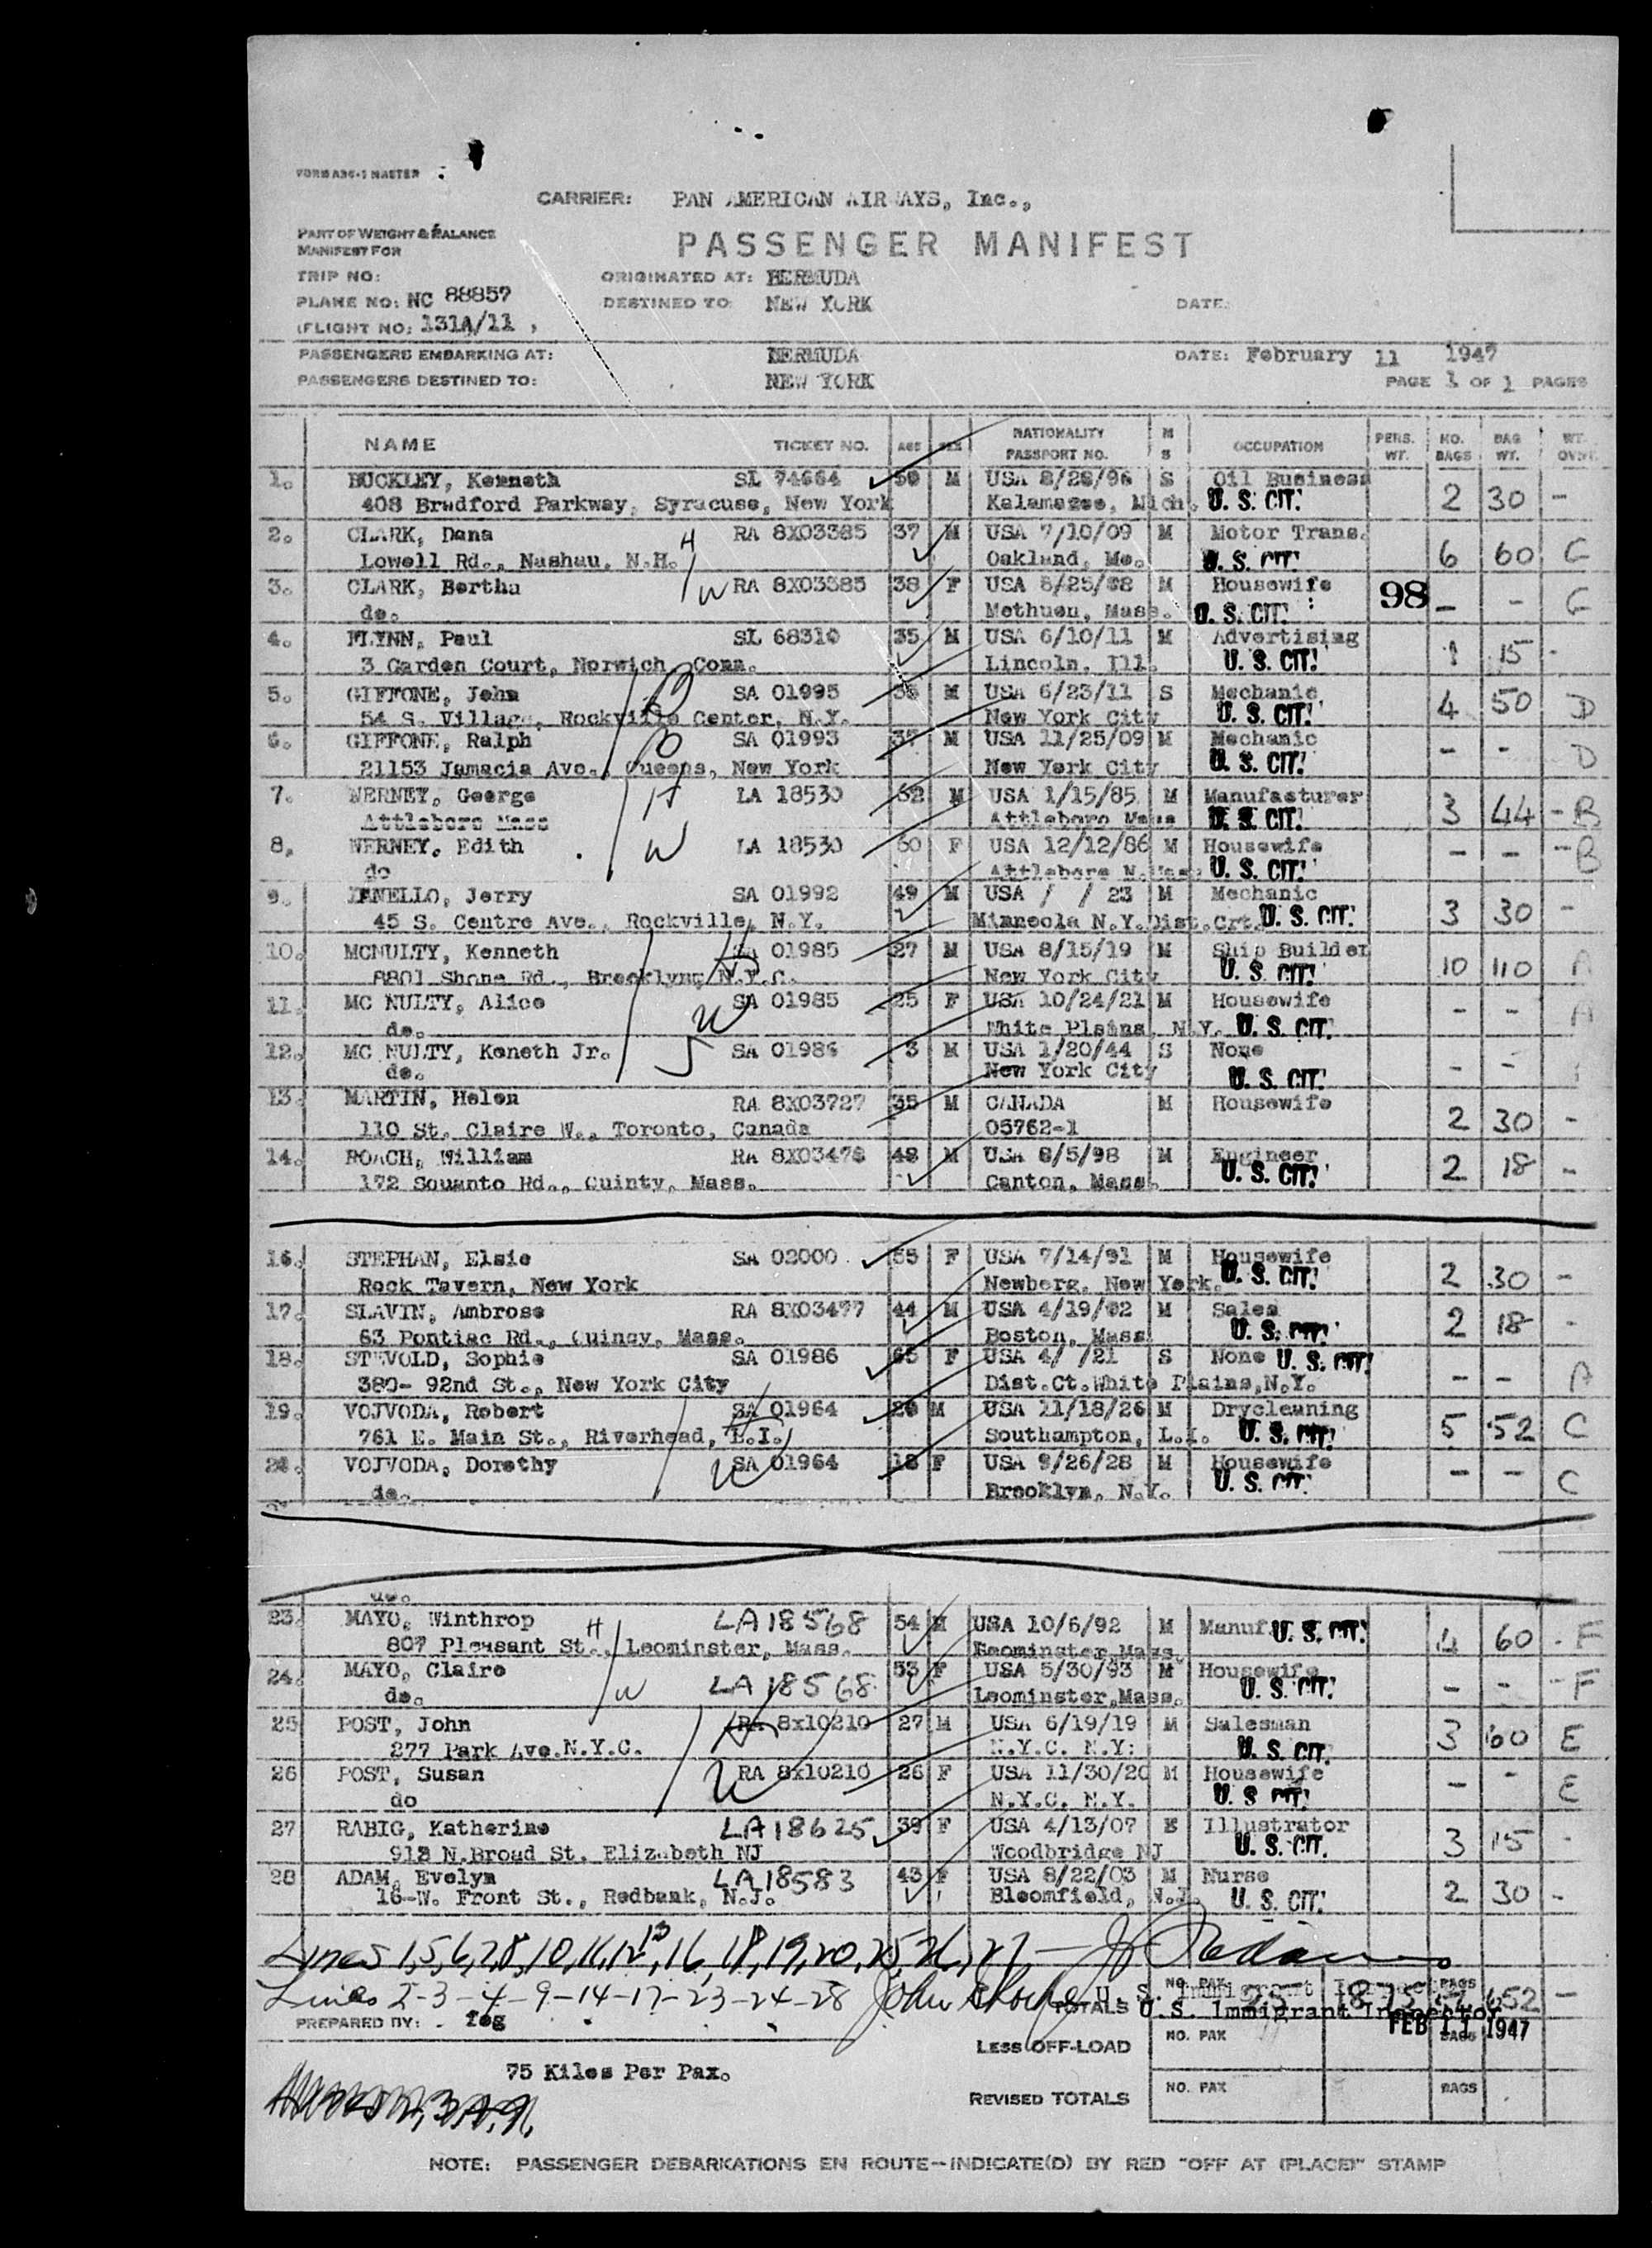 FORM ABC-1 MASTER
CARRIER: PAN AMERICAN AIRWAYS, Inc.,
PART OF WEIGHT & BALANCE
MANIFEST FOR
PASSENGER MANIFEST
TRIP NO:
ORIGINATED AT: BERMUDA
PLANE NO: NC 88857
DESTINED TO: NEW YORK
DATE:
(FLIGHT NO: 131A/11 ,
PASSENGERS EMBARKING AT: BERMUDA DATE: February 11 1947
PASSENGERS DESTINED TO: NEW YORK PAGE 1 OF 1 PAGES
NAME TICKET NO. AGE SEX NATIONALITY PASSPORT NO. M S OCCUPATION PERS. WT. NO. BAGS BAG WT. WT.
1. BUCKLEY, Kenneth SL 74664 50 M USA 8/28/96 S Oil Business
408 Bradford Parkway, Syracuse, New York Kalamazoo, Mich. U. S. CIT. 2 30 -
2. CLARK, Dana H RA 8X03385 37 M USA 7/10/09 M Motor Trans.
Lowell Rd., Nashau, N.H. Oakland, Me. U. S. CIT. 6 60 G
3. CLARK, Bertha W RA 8X03385 38 F USA 6/25/08 M Housewife 98 - - G
do. Methuen, Mass. U. S. CIT.
4. FLYNN, Paul SL 68310 35 M USA 6/10/11 M Advertising
3 Garden Court, Norwich, Conn. Lincoln, Ill. U. S. CIT. 1 15 -
5. GIFFONE, John SA 01995 35 M USA 6/23/11 S Mechanic
54 S. Village, Rockville Center, N.Y. New York City U. S. CIT. 4 50 D
6. GIFFONE, Ralph SA 01993 37 M USA 11/25/09 M Mechanic
21153 Jamacia Ave., Queens, New York New York City U. S. CIT. - - D
7. NERNEY, George H LA 18530 62 M USA 1/15/85 M Manufacturer
Attleboro Mass Attleboro Mass U. S. CIT. 3 44 - B
8. NERNEY, Edith W LA 18530 60 F USA 12/12/86 M Housewife
do Attleboro N.Mass U. S. CIT. - - - B
9. IANELLO, Jerry SA 01992 49 M USA / / 23 M Mechanic
45 S. Centre Ave., Rockville, N.Y. Minneola N.Y. Dist.Crt. U. S. CIT. 3 30 -
10. MCNULTY, Kenneth H SA 01985 27 M USA 8/15/19 M Ship Builder
8801 Shone Rd., Brooklyn, N.Y.C. New York City U. S. CIT. 10 110 A
11. MC NULTY, Alice W SA 01985 25 F USA 10/24/21 M Housewife
do. White Plains, N.Y. U. S. CIT. - - A
12. MC NULTY, Keneth Jr. S SA 01986 3 M USA 1/20/44 S None
do. New York City U. S. CIT. - -
13. MARTIN, Helen RA 8X03727 35 M CANADA M Housewife
110 St. Claire W., Toronto, Canada 05762-1 2 30 -
14. ROACH, William RA 8X03478 48 M USA 8/5/98 M Engineer
172 Squanto Rd., Quinty, Mass. Canton, Mass. U. S. CIT. 2 18 -
16. STEPHAN, Elsie SA 02000 55 F USA 7/14/91 M Housewife
Rock Tavern, New York Newberg, New York. U. S. CIT. 2 30 -
17. SLAVIN, Ambrose RA 8X03477 44 M USA 4/19/02 M Sales
63 Pontiac Rd., Quincy, Mass. Boston, Mass U. S. CIT. 2 18 -
18. STEVOLD, Sophie SA 01986 65 F USA 4/ /21 S None U. S. CIT.
380- 92nd St., New York City Dist.Ct.White Plains,N.Y. - - A
19. VOJVODA, Robert H SA 01964 20 M USA 11/18/26 M Drycleaning
761 E. Main St., Riverhead, L.I. Southampton, L.I. U. S. CIT. 5 52 C
VOJVODA, Dorothy W SA 01964 18 F USA 9/26/28 M Housewife
do. Brooklyn, N.Y. U. S. CIT. - - C
do.
23. MAYO, Winthrop H LA 18568 54 M USA 10/6/92 M Manuf. U. S. CIT.
807 Pleasant St., Leominster, Mass. Leominster,Mass. 4 60 - F
24. MAYO, Claire W LA 18568 53 F USA 5/30/93 M Housewife
do. Leominster,Mass. U. S. CIT. - - - F
25 POST, John H RA 8x10210 27 M USA 6/19/19 M Salesman
277 Park Ave.N.Y.C. N.Y.C. N.Y. U. S. CIT. 3 60 E
26 POST, Susan W RA 8x10210 26 F USA 11/30/20 M Housewife
do N.Y.C. N.Y. U. S. CIT. - - E
27 RABIG, Katherine LA 18625 39 F USA 4/13/07 S Illustrator
918 N.Broad St. Elizabeth NJ Woodbridge NJ U. S. CIT. 3 15 -
28 ADAM, Evelyn LA 18583 43 F USA 8/22/03 M Nurse
16-W. Front St., Redbank, N.J. Bloomfield, N.J. U. S. CIT. 2 30 -
Lines 1,5,6,7,8,10,11,12,13,16,18,19,20,25,26,27 —
Lines 2-3-4-9-14-17-23-24-28 John U. S. Immigrant Inspector
TOTALS NO. PAX 25 1875 BAGS 652
U.S. Immigrant Inspector
PREPARED BY: feg
FEB 11 1947
LESS OFF-LOAD NO. PAX BAGS
75 Kilos Per Pax.
REVISED TOTALS NO. PAX BAGS
NOTE: PASSENGER DEBARKATIONS EN ROUTE—INDICATE(D) BY RED "OFF AT (PLACE)" STAMP